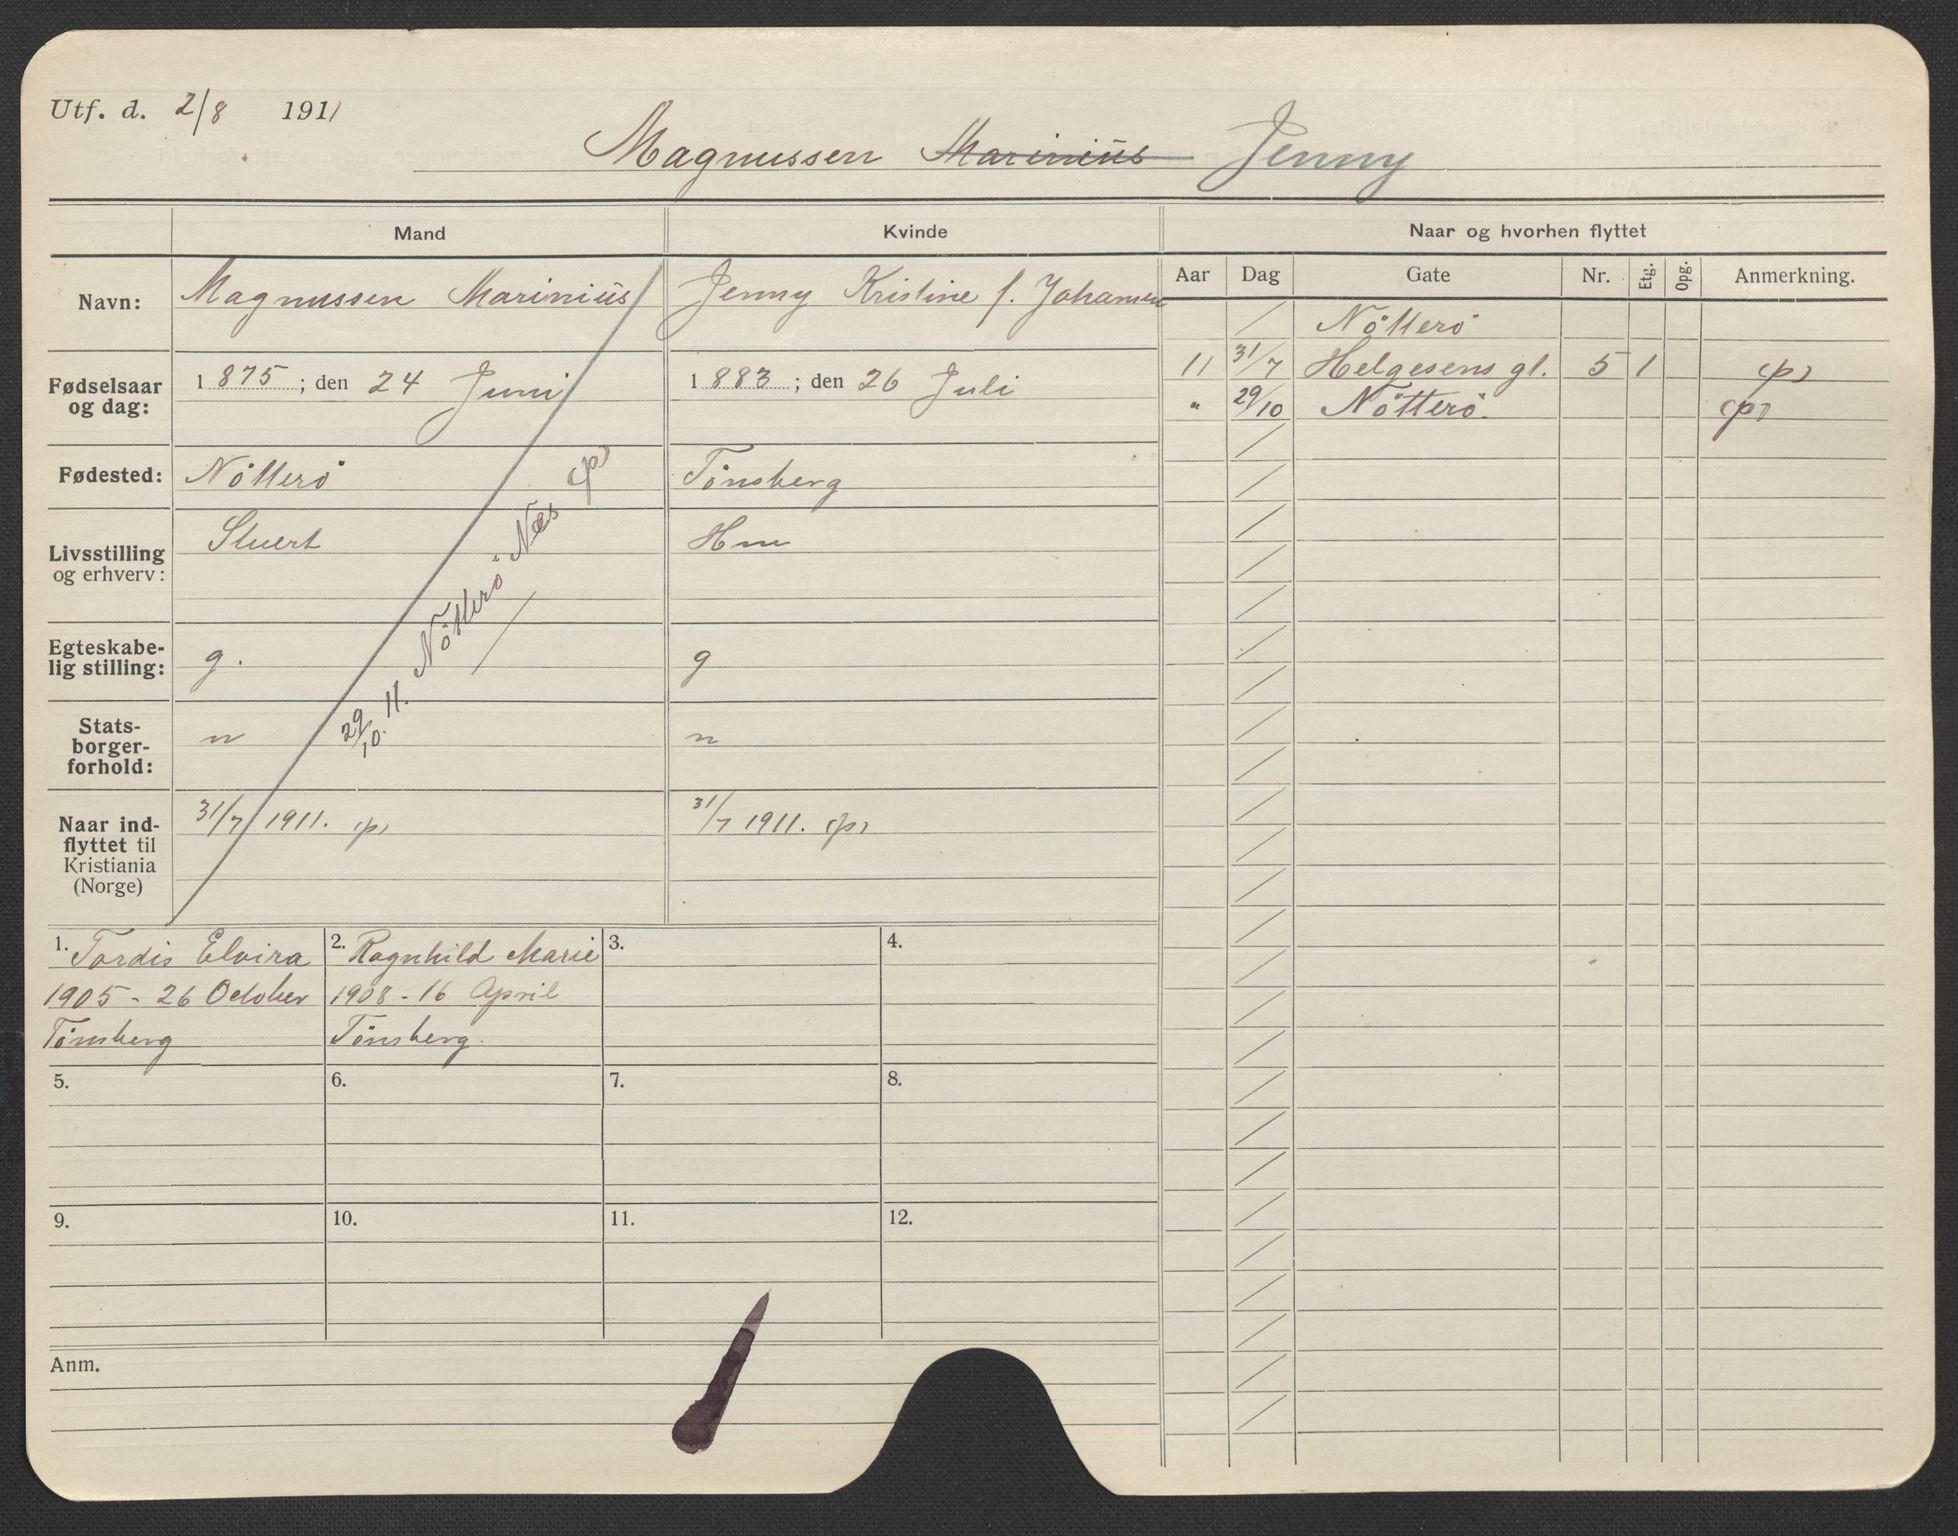 Utf. d. 2/8 1911
Magnussen Marinius Jenny
Mand
Kvinde
Naar og hvorhen flyttet
Navn: Magnussen Marinius
Jenny Kristine f. Johansen
Aar Dag Gate Nr. Etg. Opg. Anmerkning.
Nötterö
11 31/7 Helgesens gt. 5 1 (p)
" 29/10 Nötterö. (p)
Fødselsaar og dag: 1875; den 24 Juni
1883; den 26 Juli
Fødested: Nötterö
Tönsberg
Livsstilling og erhverv: Stuert
Hm
Egteskabe-
lig stilling: g.
g
Stats-
borger-
forhold: n
n
29/10. 11. Nötterö Næs (p)
Naar ind-
flyttet til
Kristiania
(Norge)
31/7 1911. (p)
31/7 1911. (p)
1. Tordis Elvira
1905 - 26 October
Tönsberg
2. Ragnhild Marie
1908 - 16 April
Tönsberg.
3.
4.
5.
6.
7.
8.
9.
10.
11.
12.
Anm.